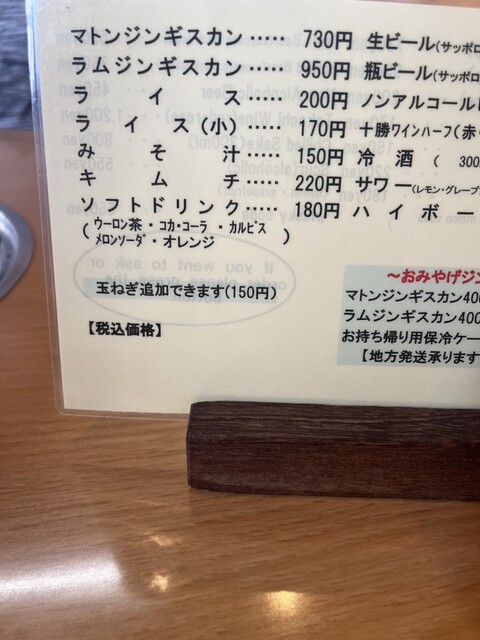 マトンジンギスカン ····· 730円 生ビール(サッポロ
ラムジンギスカン ····· 950円 瓶ビール(サッポロ
ライス ····· 200円 ノンアルコールビ
ライス(小) ····· 170円 十勝ワインハーフ(赤・
みそ汁 ····· 150円 冷酒( 300
キムチ ····· 220円 サワー(レモン・グレープ
ソフトドリンク ····· 180円 ハイボー
(ウーロン茶・コカ・コーラ・カルピス
メロンソーダ・オレンジ)
玉ねぎ追加できます(150円)
【税込価格】
~おみやげジン
マトンジンギスカン400
ラムジンギスカン400
お持ち帰り用保冷ケー
【地方発送承ります